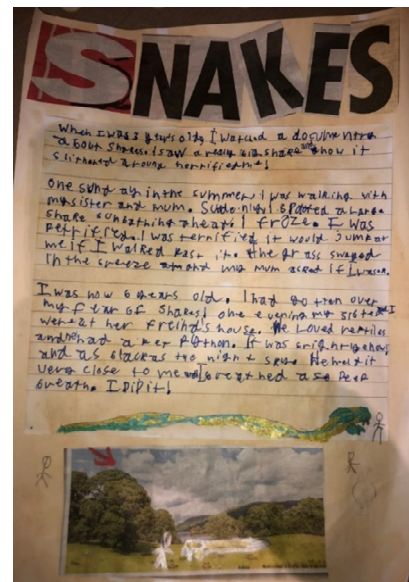 SNAKES
When I was 3 years old, I watched a documentra
about snakes. I saw a really big snake and how it
slithered around horrified me!
one sunday in the summer I was walking with
my sister and mum. Suddenly I spoted a large
snake sunbathing ahead! I froze. I was
petrified. I was terrified it would jump at
me if I walked past it. the grass swayed
in the breeze and my mum asked if I
I was now 6 years old. I had gotten over
my fear of snakes! one evening my sister and I
were at her freind's house. He loved reptiles
and he had a pet python. It was bright yellow
and as black as the night sky. He held it
very close to me. I breathed a deep
breath. I did it!